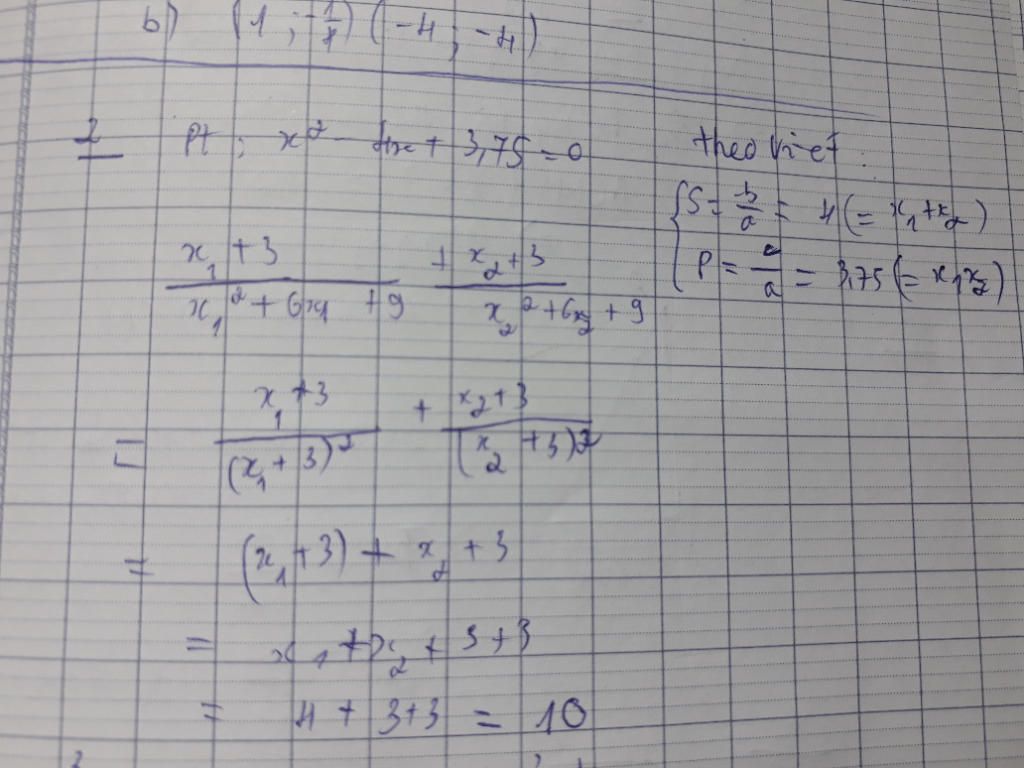 b) (1 ; -1/4) (-4 ; -4)
2 Pt : x² - 4x + 3,75 = 0
theo Viet :
S = b/a = 4 (= x₁ + x₂)
P = c/a = 3,75 (= x₁x₂)
(x₁ + 3)/(x₁² + 6x₁ + 9) + (x₂ + 3)/(x₂² + 6x₂ + 9)
= (x₁ + 3)/(x₁ + 3)² + (x₂ + 3)/(x₂ + 3)²
= (x₁ + 3) + x₂ + 3
= x₁ + x₂ + 3 + 3
= 4 + 3 + 3 = 10